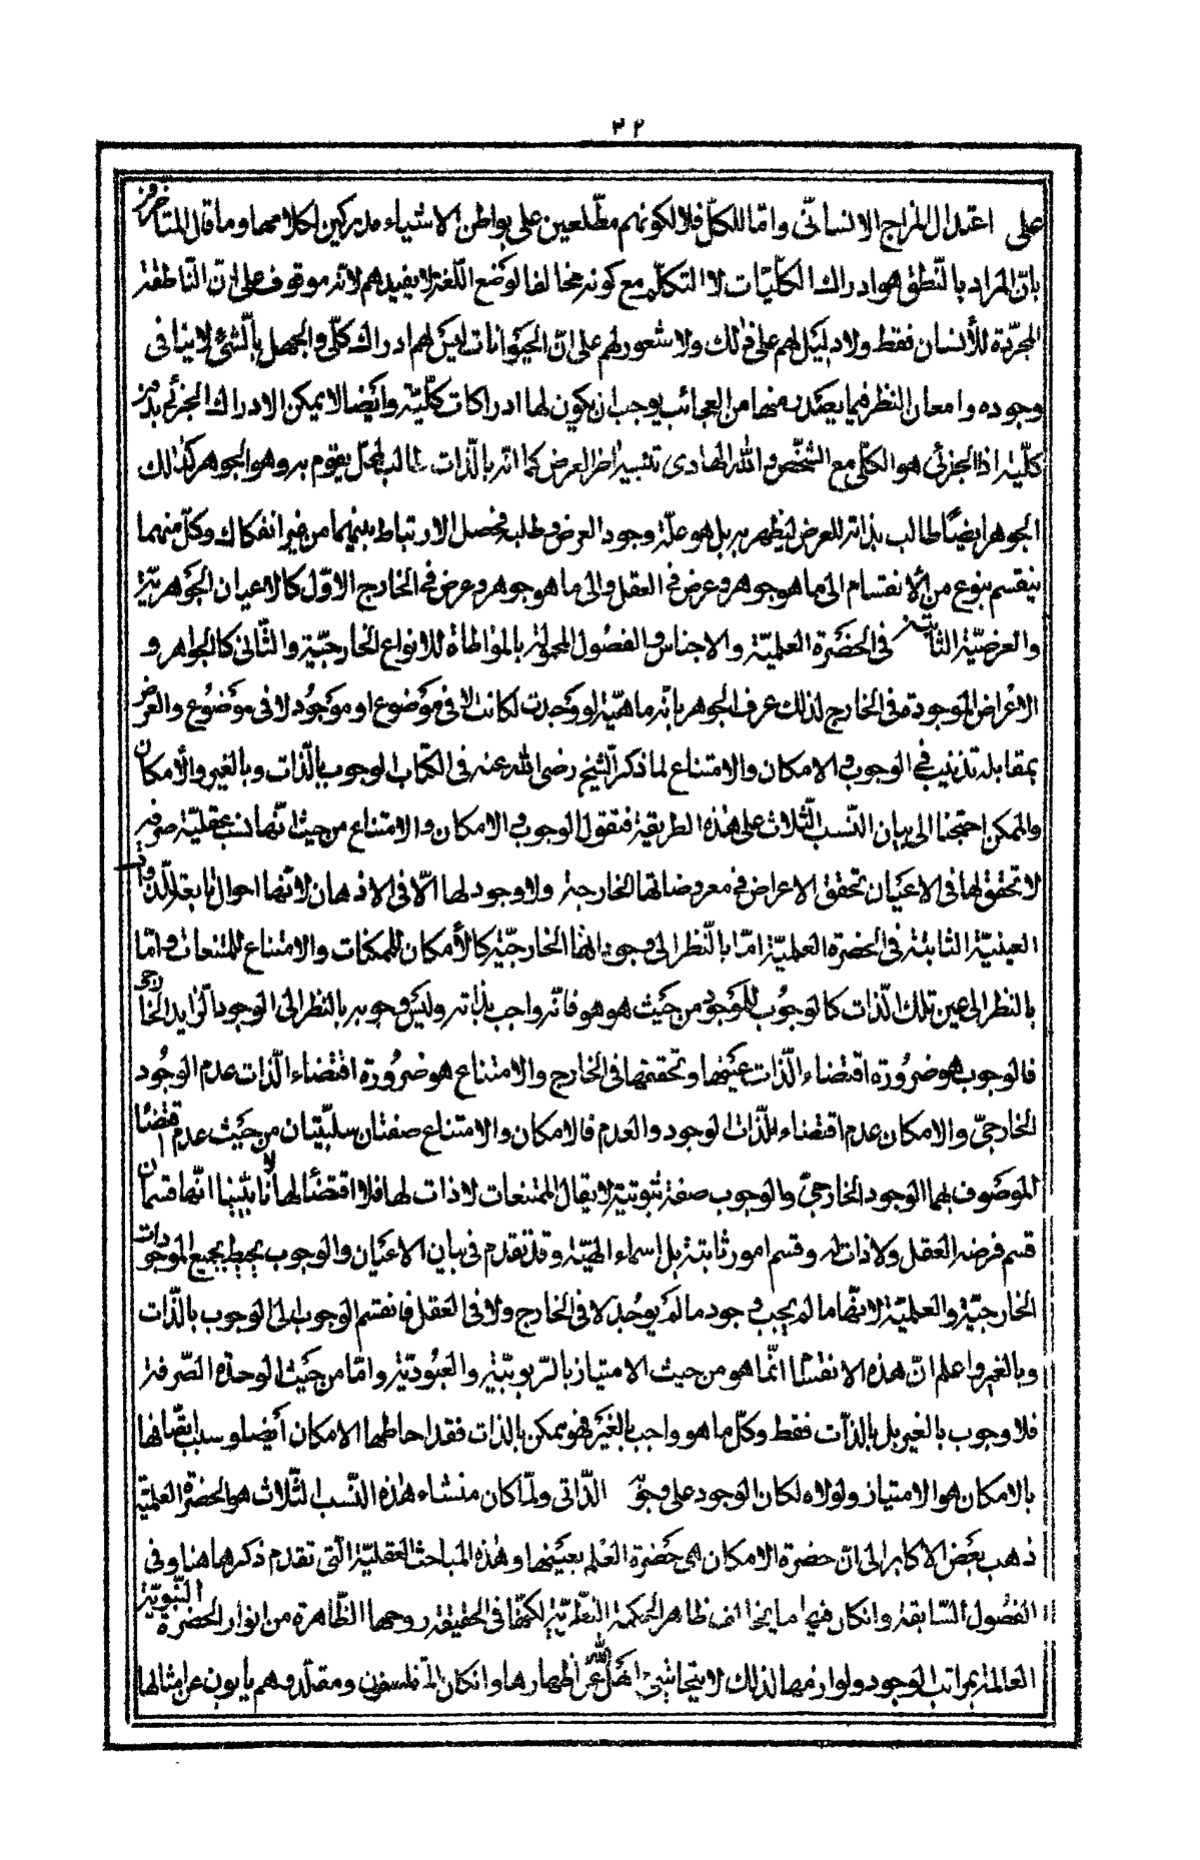 ٣٢
على اعتدال المزاج الانسانى واما للكمّل فلا لكونهم مطّلعين على بواطن الاشياء مدركين لكلامها وما قال المتأخرون
بانّ المراد بالنّطق هو ادراك الكلّيات لا التكلّم مع كونه مخالفا لوضع اللّغة لا يفيدهم لانّه موقوف على انّ النّاطقة
المجرّدة للأنسان فقط ولا دليل لهم على ذلك ولا شعور لهم على انّ الحيوانات ليس لهم ادراك كلّى والجهل بالشّئ لا ينافى
وجوده وامعان النظر فيما يصدر منها من العجائب يوجب ان يكون لها ادراكات كلّيّة وايضا لا يمكن الادراك الجزئى بدون
كلّيه اذ الجزئى هو الكلّى مع التشخّص والله الهادى تنبيه اخر العرض كما انّه بالذّات طالب لمحلّ يقوم به وهو الجوهر كذلك
الجوهر ايضًا طالب بذاته للعرض ليظهر به بل هو علّة وجود العرض وطلبه فحصل الارتباط بينهما من غير انفكاك وكلّ منهما
ينقسم بنوع من الانقسام الى ما هو جوهر وعرض فى العقل والى ما هو جوهر وعرض فى الخارج الاوّل كالاعيان الجوهريّة
والعرضيّة الثابتة فى الحضرة العلميّة والاجناس والفصول المحمولة بالمواطاة للانواع الخارجيّة والثّانى كالجواهر و
الاعراض الموجودة فى الخارج لذلك عرف الجوهر بانّه ماهيّة لو وجدت لكانت لا فى موضوع او موجود لا فى موضوع والعرض
بمقابله تذنيب فى الوجوب والامكان والامتناع لما ذكر الشّيخ رضى الله عنه فى الكتاب الوجوب بالذّات وبالغير والأمكان
والممكن احتجنا الى بيان النّسب الثّلاث على هذه الطريقة فنقول الوجوب والامكان والامتناع من حيث انّها نسب عقليّة صرفة
لا تحقق لها فى الاعيان تحقق الاعراض فى معروضاتها الخارجة ولا وجود لها الّا فى الاذهان لانّها احوال تابعة للذّوات
العينيّة الثابتة فى الحضرة العلميّة امّا بالنّظر الى وجوداتها الخارجيّة كالأمكان للممكنات والامتناع للممتنعات وامّا
بالنظر الى عين تلك الذّات كالوجوب للموجود من حيث هو هو فانّه واجب بذاته وليس وجوبه بالنظر الى الوجود الزايد الخارجى
فالوجوب هو ضرورة اقتضاء الذّات عينها وتحققها فى الخارج والامتناع هو ضرورة اقتضاء الذّات عدم الوجود
الخارجىّ والامكان عدم اقتضاء الذّات الوجود والعدم فالامكان والامتناع صفتان سلبيّتان من حيث عدم اقتضاء
الموصوف بهما الوجود الخارجىّ والوجوب صفة ثبوتية لا يقال الممتنعات لا ذات لها فلا اقتضا لها لأنا بيّنا انّها قسمان
قسم فرضه العقل ولا ذات له وقسم امور ثابتة بل اسماء الهيّة وقد تقدم فى بيان الاعيان والوجوب يحيط بجميع الموجودات
الخارجيّة والعلميّة لانّها ما لم يجب وجودها لم يوجد لا فى الخارج ولا فى العقل فانقسم الوجوب الى الوجوب بالذّات
وبالغير واعلم انّ هذه الانقسام انّما هو من حيث الامتياز بالرّبوبيّة والعبوديّة وامّا من حيث الوحدة الصّرفة
فلا وجوب بالغير بل بالذّات فقط وكلّ ما هو واجب بالغير فهو ممكن بالذات فقد احاطها الامكان أيضا وسبب اتّصافها
بالامكان هو الامتياز ولولاه لكان الوجود على وجوبه الذّاتى ولمّا كان منشاء هذه النّسب الثّلاث هو الحضرة العلميّة
ذهب بعض الاكابر الى انّ حضرة الامكان هى حضرة العلم بعينها وهذه المباحث العقليّة الّتى تقدم ذكرها هنا وفى
الفصول السّابقة وان كان فيها ما يخالف ظاهر الحكمة النظريّة لكنّها فى الحقيقة روحها الظّاهرة من انوار الحضرة النّبويّة
العالمة بمراتب الوجود ولوازمها لذلك لا يتحاشى اهل الله عن اظهارها وان كان المتفلسفون ومقلّدوهم يأبون عن امثالها